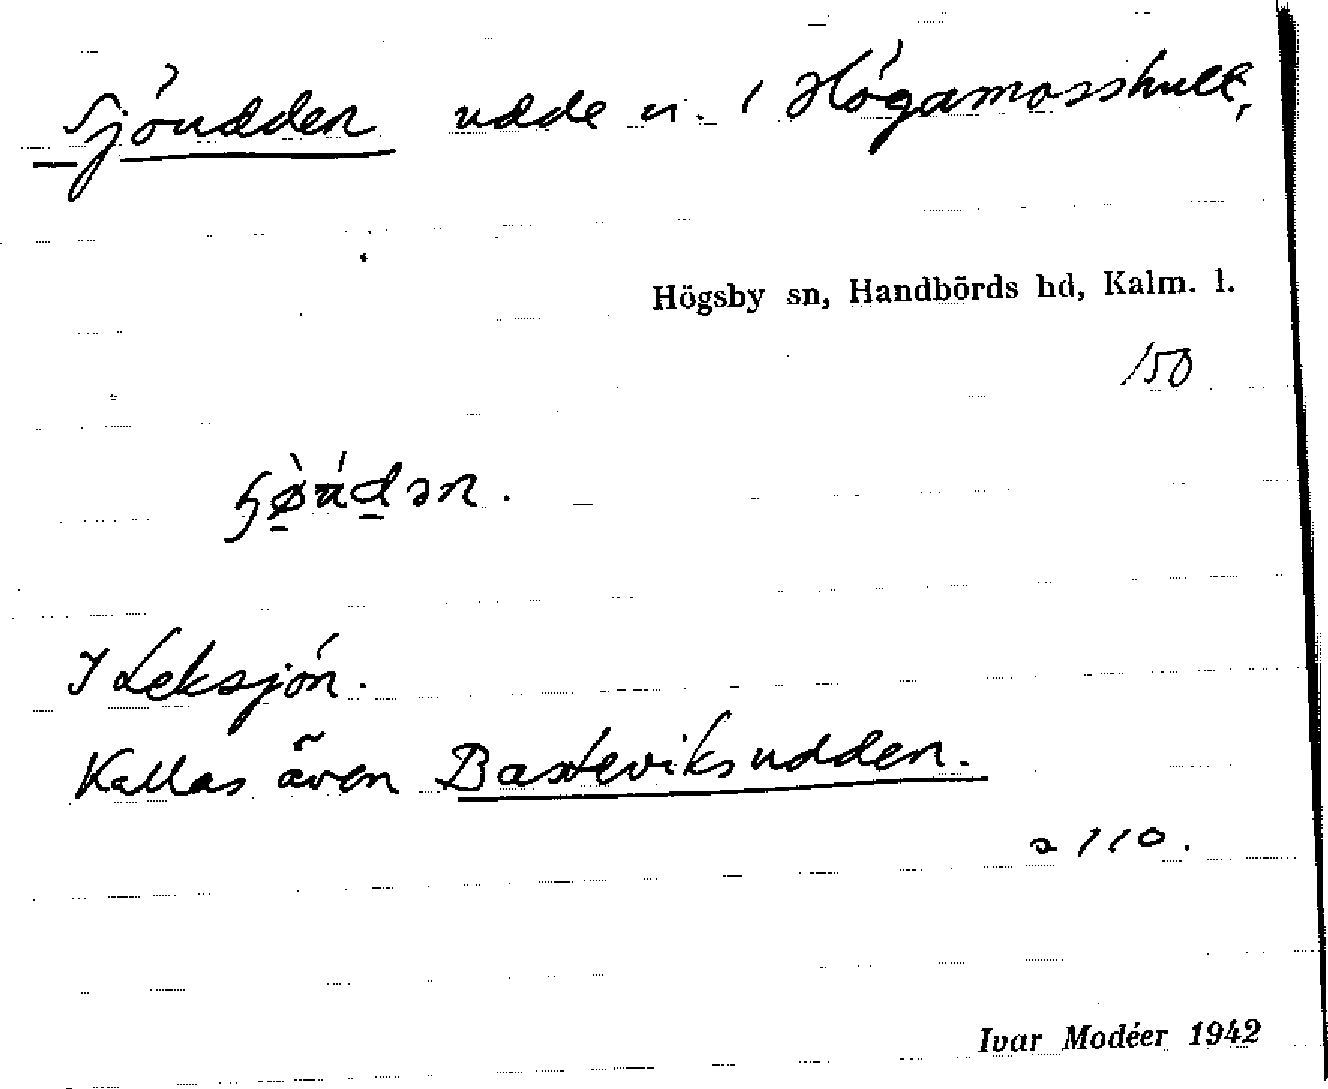 Sjöudden udde n. i Högamosshult,
Högsby sn, Handbörds hd, Kalm. l.
150
I Leksjön.
Kallas även Basteviksudden.
a 110.
Ivar Modéer 1942